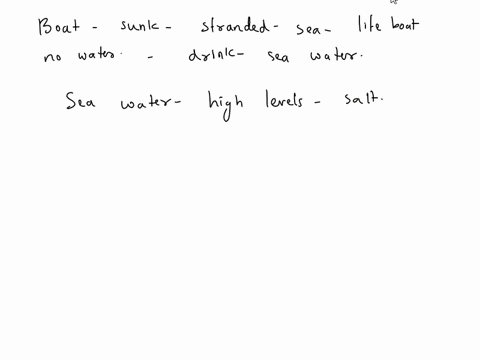 Boat - sunk - stranded - sea - life boat
no water. - drink - sea water.
Sea water - high levels - salt.